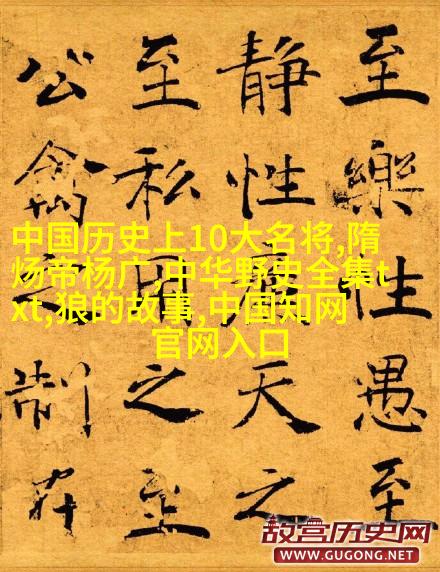 至樂性愚至
静性廉天之
至私用之至
公禽之制在
中国历史上10大名将,隋
炀帝杨广,中华野史全集t
xt,狼的故事,中国知网
官网入口
故宫历史网
WWW.GUGONG.NET